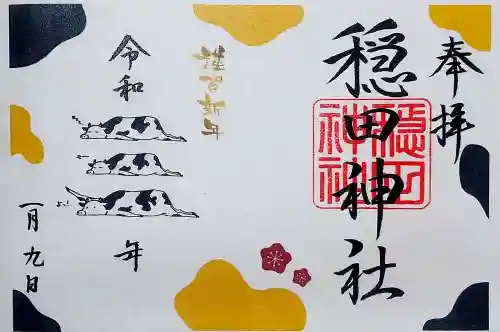 奉拝
穏田神社
穏田
神社
謹賀新年
令和
年
一月九日